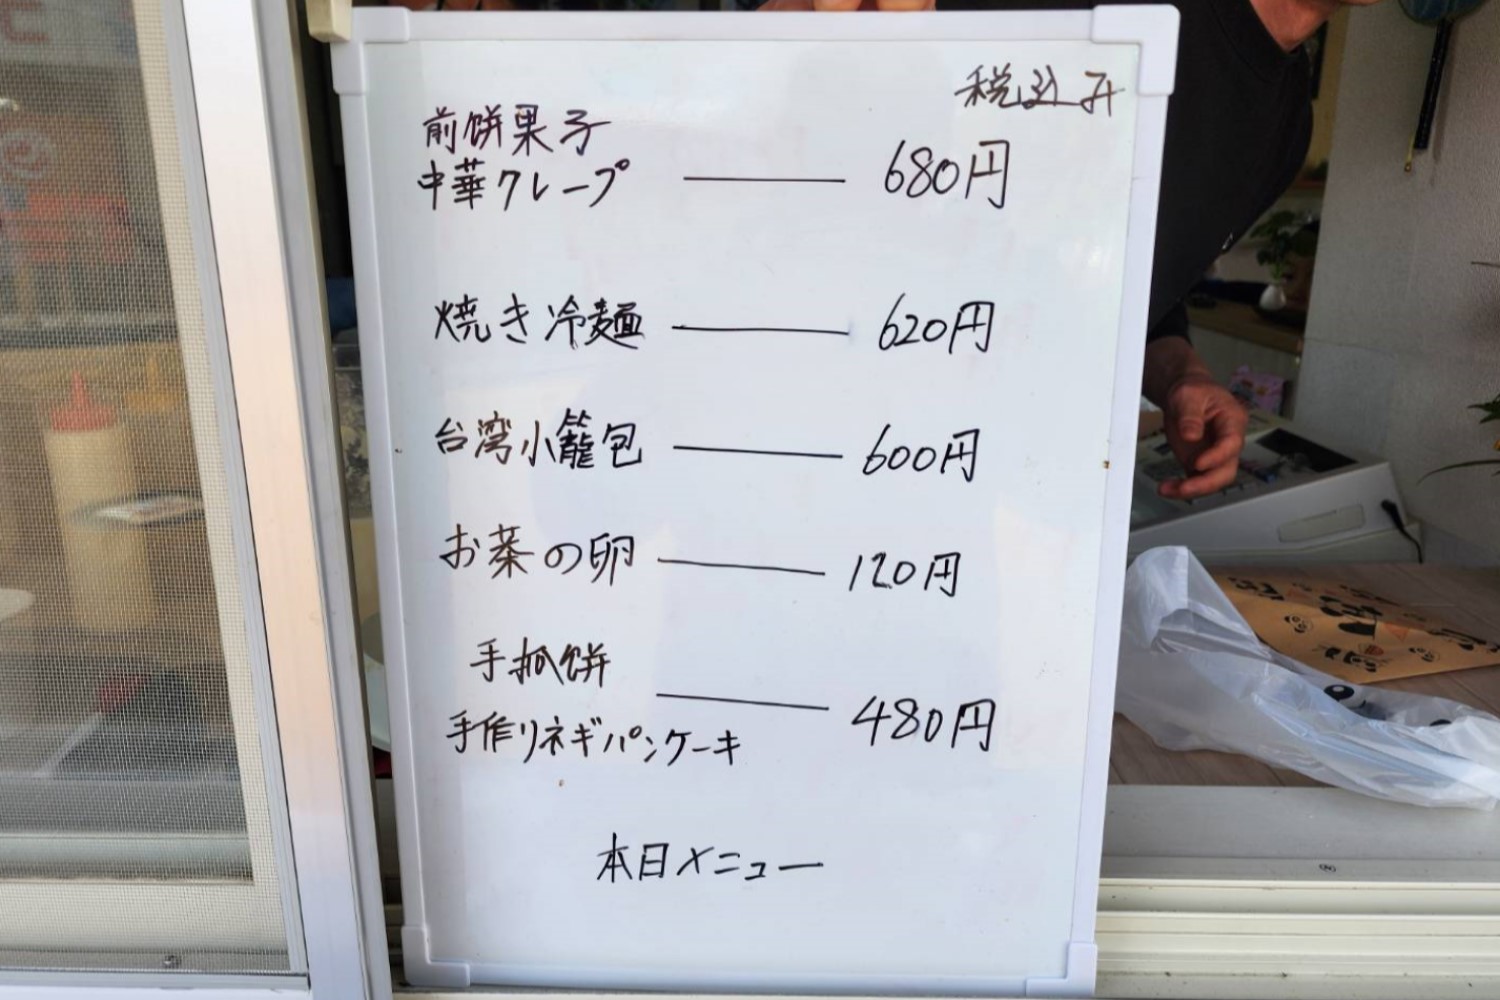 税込み
前餅果子
中華クレープ 680円
焼き冷麺 620円
台湾小籠包 600円
お茶の卵 120円
手抓餅
手作りネギパンケーキ 480円
本日メニュー